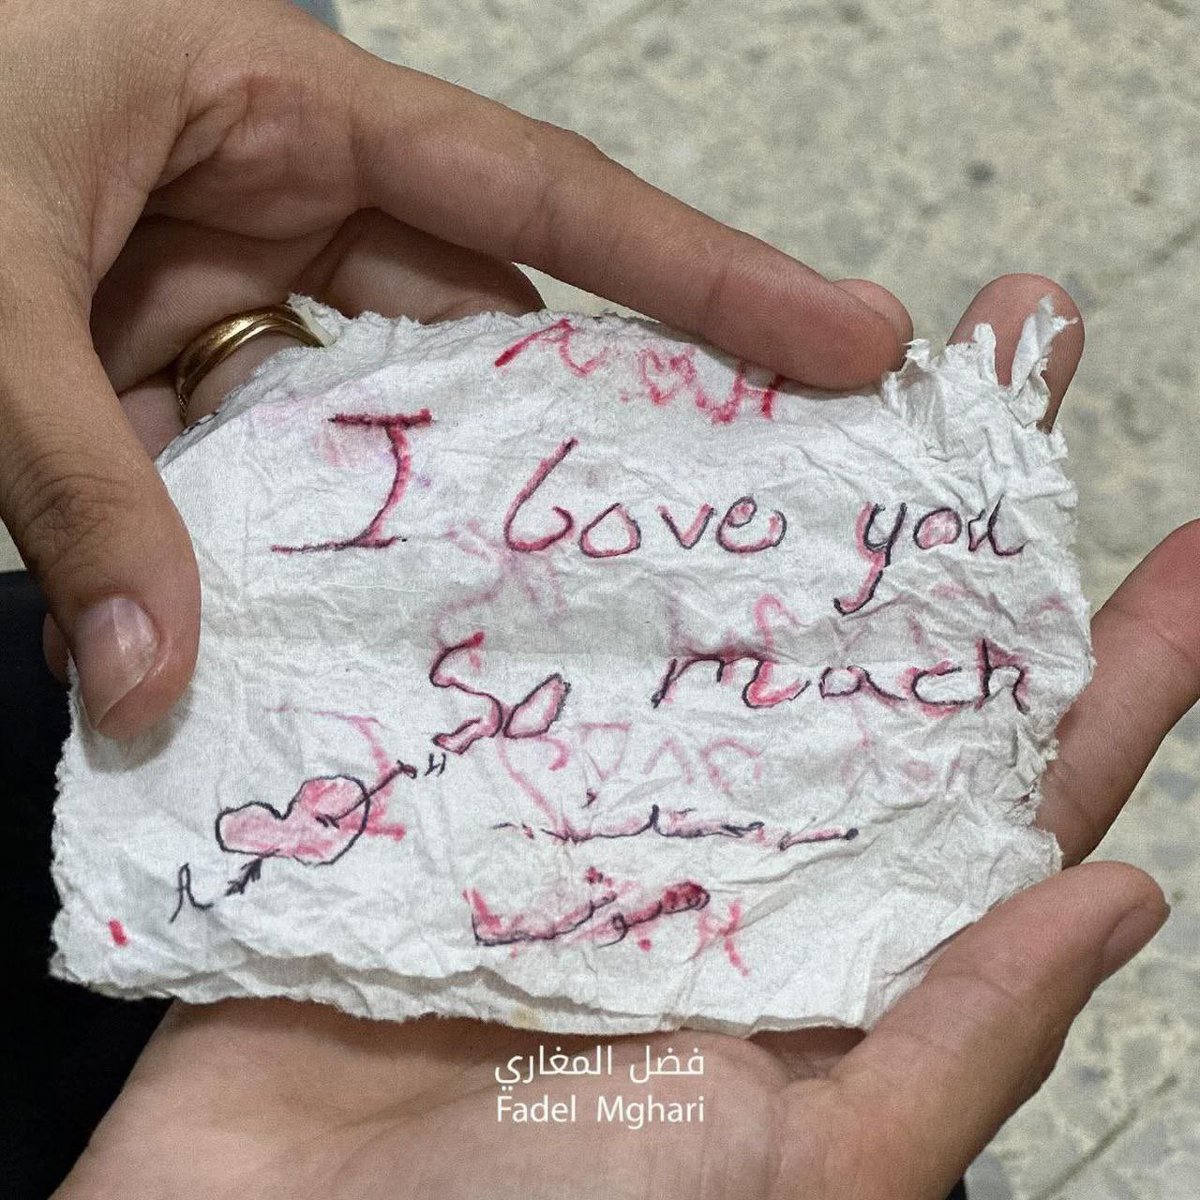 I Love you
So much
H
A
فضل المغاري
Fadel Mghari